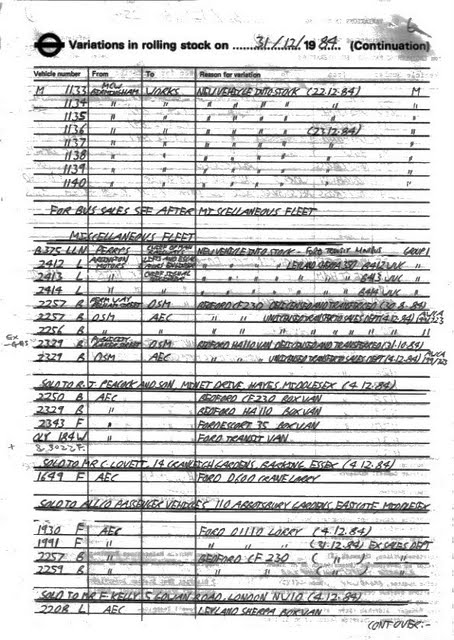 6
Variations in rolling stock on 31/12/1984 (Continuation)
Vehicle number From To Reason for variation
M 1133 MCW BIRMINGHAM WORKS NEW VEHICLE INTO STOCK (22.12.84) M
1134 " " " " " "
1135 " " " " " "
1136 " " " " " (23.12.84)
1137 " " " " "
1138 " " " " "
1139 " " " " "
1140 " " " " "
FOR BUS SALES SEE AFTER MISCELLANEOUS FLEET
MISCELLANEOUS FLEET
NEW VEHICLE INTO STOCK - FORD TRANSIT MINIBUS GROUP 1
2412 L MOTORS LEYLAND SHERPA 350
2413 L " " "
2414 L " " " "
2257 B OSM BEDFORD CF230 DELICENSED AND TRANSFERRED (30.8.84)
2257 B OSM AEC " " UNLICENSED TRANSFER TO SALES DEPT (4.12.84)
2256 B " " " " " " " "
2329 B OSM BEDFORD HA110 VAN DELICENSED AND TRANSFERRED (31.10.84)
2329 B OSM AEC " " UNLICENSED TRANSFER TO SALES DEPT (4.12.84)
SOLD TO R.T. PEACOCK AND SON, MIDNET DRIVE, HAYES, MIDDLESEX (4.12.84)
2250 B AEC BEDFORD CF230 BOX VAN
2329 B " BEDFORD HA110 BOXVAN
2343 F " FORD ESCORT 35 BOXVAN
QLY 184W " FORD TRANSIT VAN
SOLD TO MR C. LOVETT, 14 CRANLEIGH GARDENS, BARKING, ESSEX (4.12.84)
1649 F AEC FORD D600 CRANE LORRY
SOLD TO ALLCO PASSENGER VEHICLES, 110 ABBOTSBURY GARDENS, EASTCOTE MIDDLESEX
1930 F AEC FORD D1110 LORRY (4.12.84)
1991 F " " " " EX SALES DEPT
2257 B " BEDFORD CF 230 - ( " " )
2259 B " " " - ( " " )
SOLD TO MR F KELLY 5 GOWAN ROAD, LONDON NW10 (4.12.84)
2208 L AEC LEYLAND SHERPA BOXVAN
CONT OVER:-